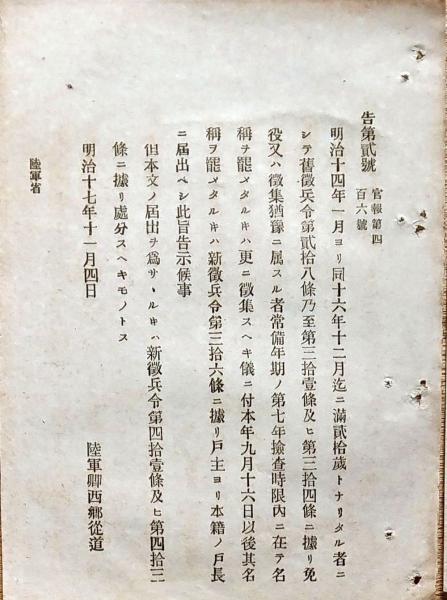 告第貳號
官報第四
百六號
明治十四年一月ヨリ同十六年十二月迄ニ滿貳拾歲トナリタル者ニ
シテ舊徵兵令第貳拾八條乃至第三拾壹條及ヒ第三拾四條ニ據リ免
役又ハ徵集猶豫ニ属スル者常備年期ノ第七年撿査時限內ニ在テ名
稱ヲ罷メタルキハ更ニ徵集スヘキ儀ニ付本年九月十六日以後其名
稱ヲ罷メタルキハ新徵兵令第三拾六條ニ據リ戶主ヨリ本籍ノ戶長
ニ屆出ベシ此旨告示候事
但本文ノ屆出ヲ爲サヽルキハ新徵兵令第四拾壹條及ヒ第四拾三
條ニ據リ處分スヘキモノトス
明治十七年十一月四日
陸軍卿西鄕從道
陸軍省